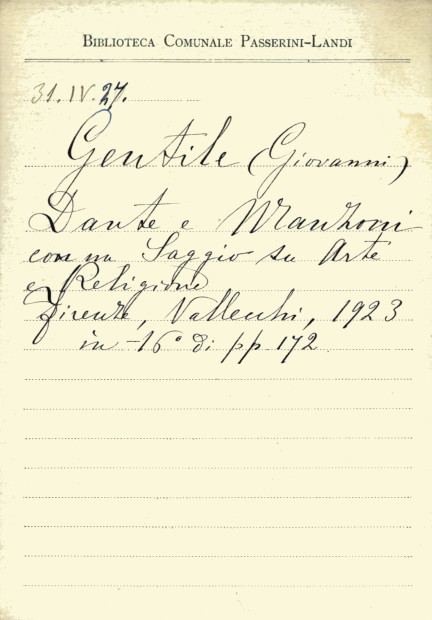 BIBLIOTECA COMUNALE PASSERINI-LANDI
31. IV. 27.
Gentile (Giovanni)
Dante e Manzoni
con un Saggio su Arte
e Religione
Firenze, Vallecchi, 1923
in -16° di pp 172